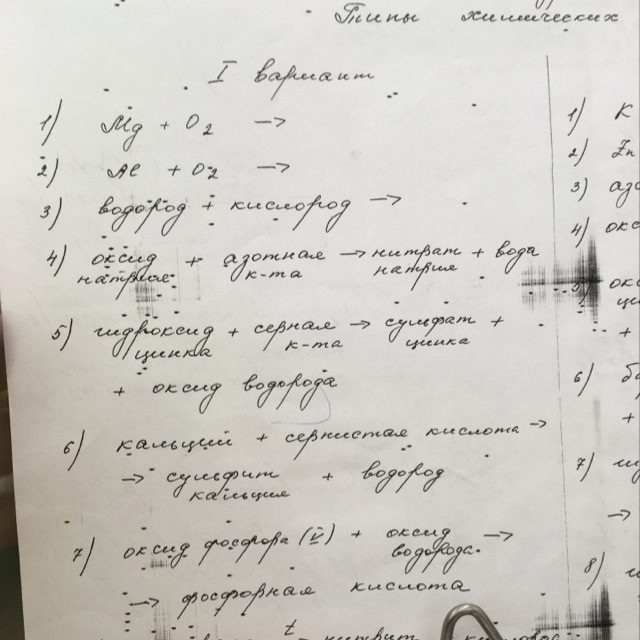 Типы химических
I вариант
1) Mg + O2 →
2) Al + O2 →
3) водород + кислород →
4) оксид натрия + азотная к-та → нитрат натрия + вода
5) гидроксид цинка + серная к-та → сульфат цинка +
+ оксид водорода
6) кальций + сернистая кислота →
→ сульфит кальция + водород
7) оксид фосфора (V) + оксид водорода →
→ фосфорная кислота
t
→ нитрит
1) K
2) Zn
3) азо
4) окс
5) окс
ци
+
6) ба
+
7)
→
8)